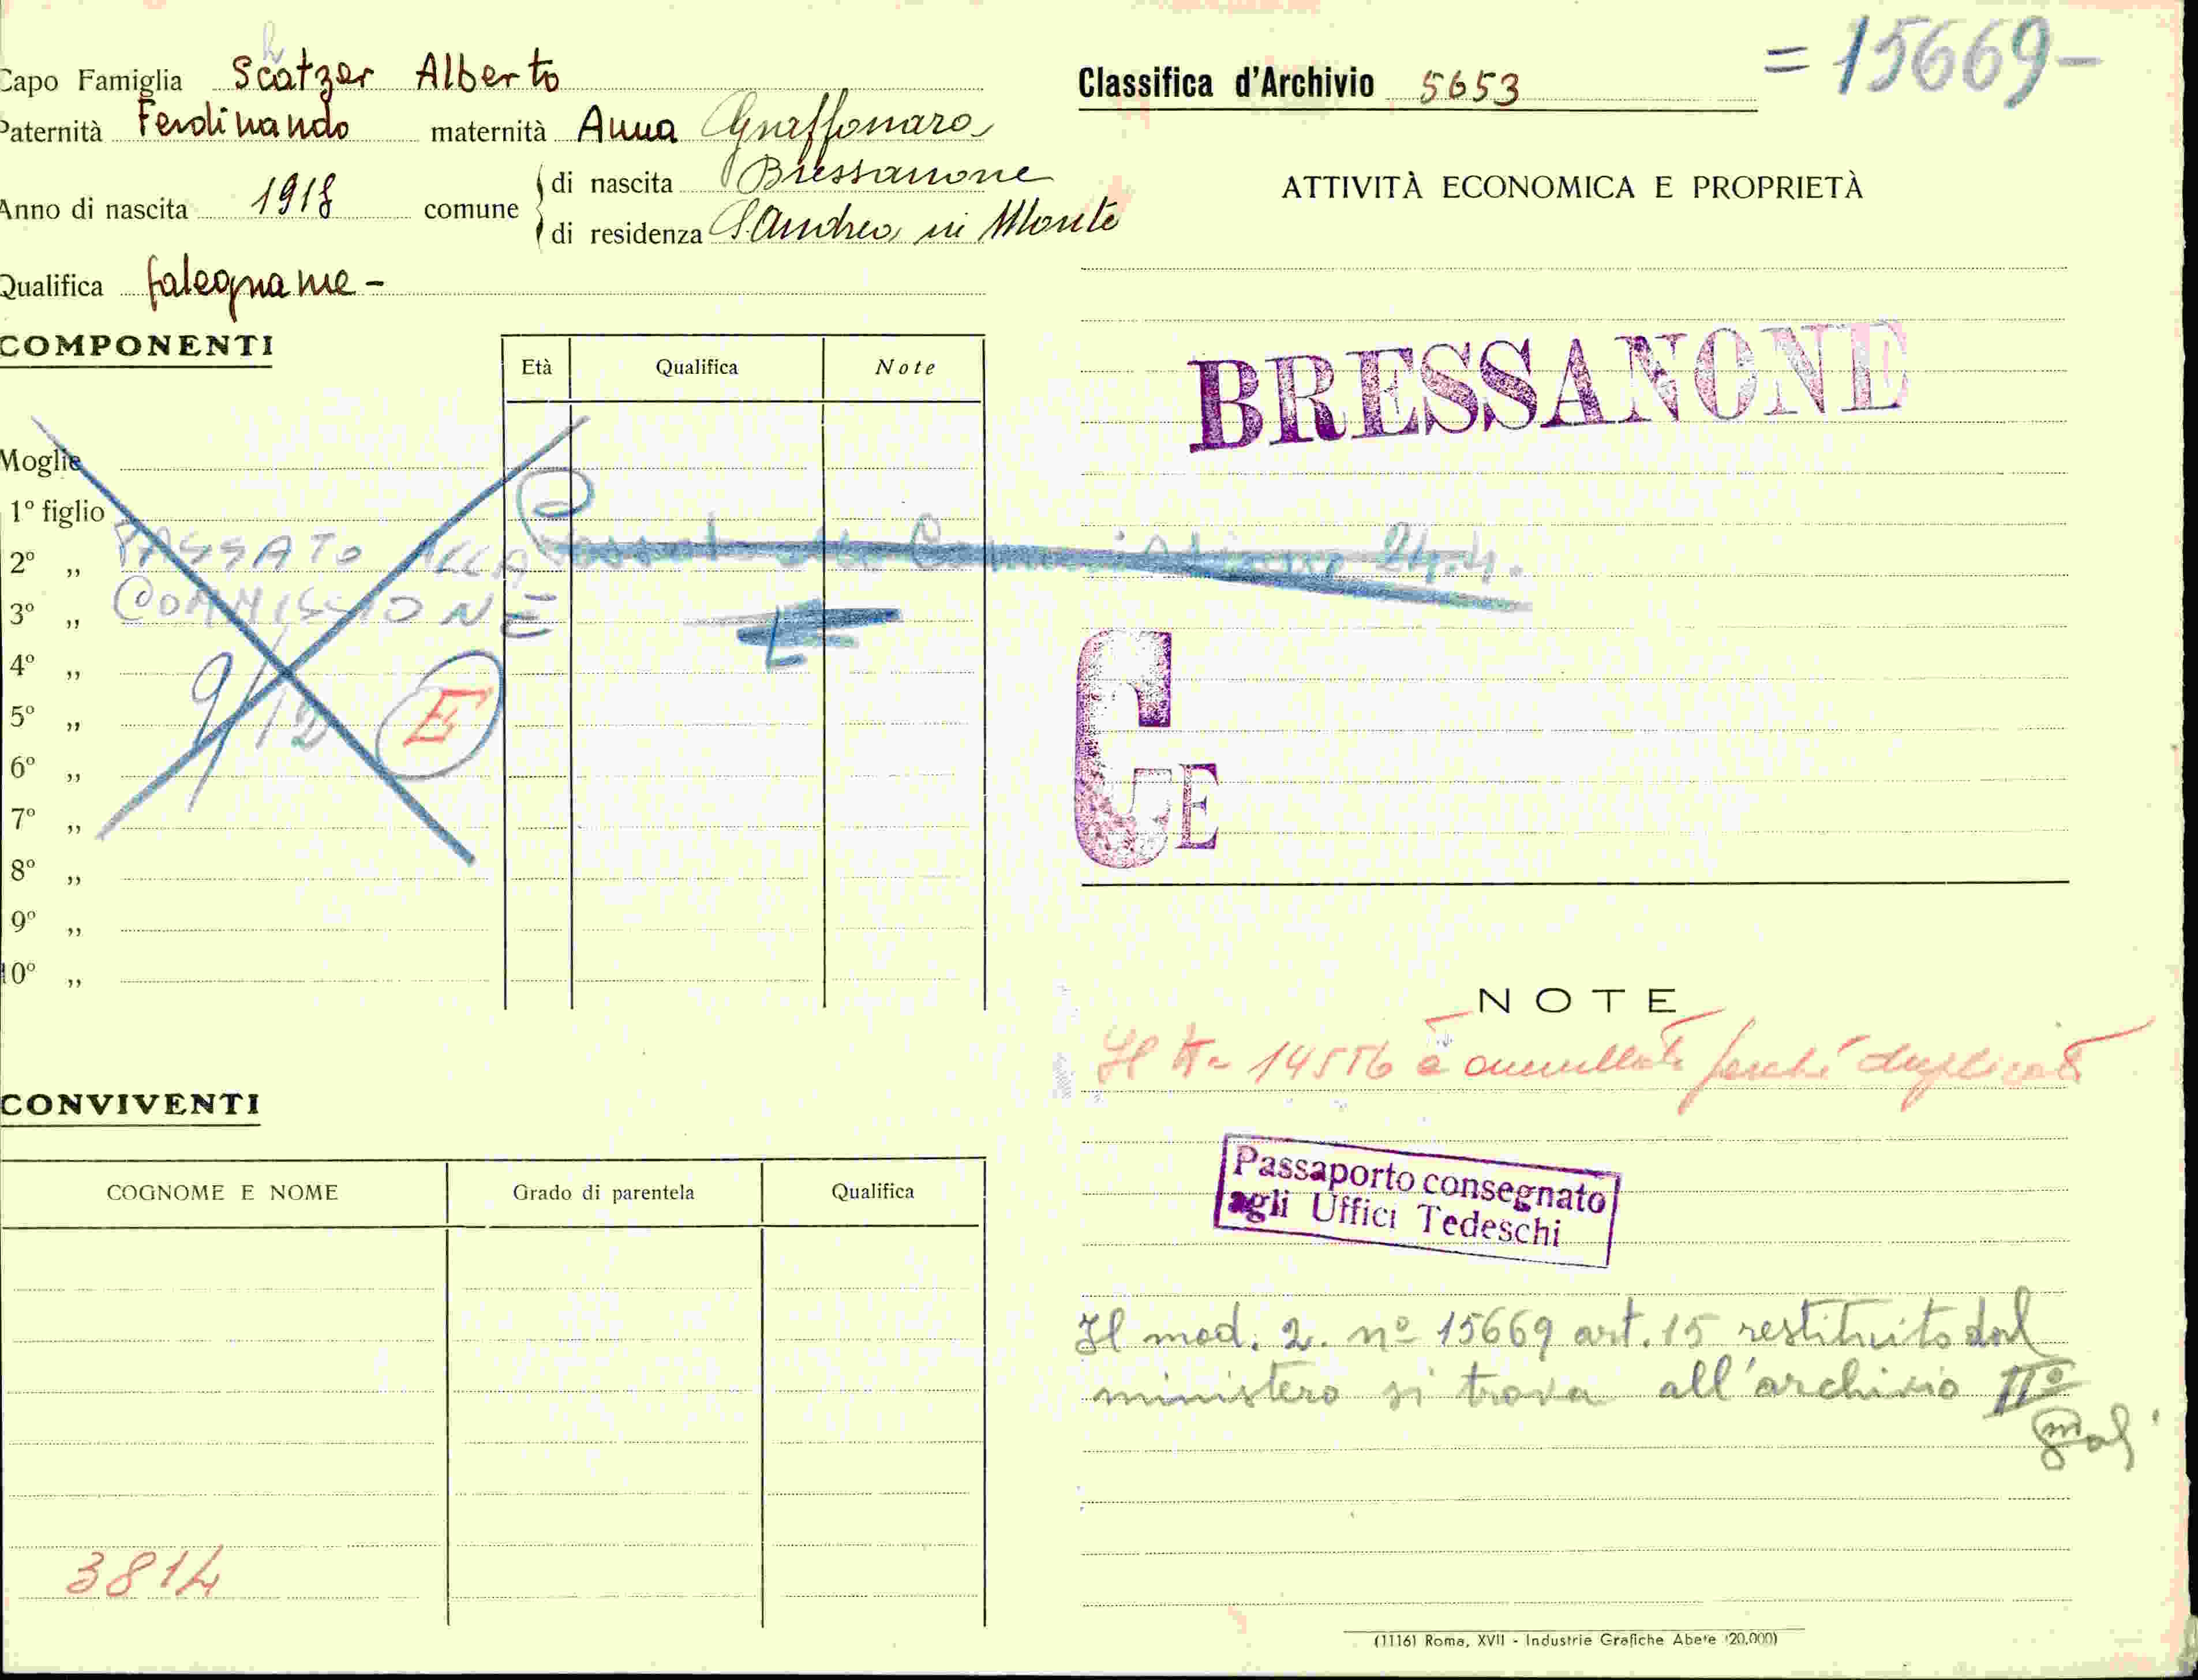 Capo Famiglia Scatzer Alberto
h
Paternità Ferdinando maternità Anna Graffonara
Anno di nascita 1918 comune di nascita Bressanone
di residenza S. Andrea in Monte
Qualifica falegname -
COMPONENTI
Età Qualifica Note
Moglie
1º figlio
2º „ PASSATO ALLA
3º „ COMMISSIONE
4º „ 9/12
5º „ E
6º „
7º „
8º „
9º „
10º „
Passato alla Commissione 24.4.
CONVIVENTI
COGNOME E NOME Grado di parentela Qualifica
3814
= 15669 -
Classifica d'Archivio 5653
ATTIVITÀ ECONOMICA E PROPRIETÀ
BRESSANONE
C E
NOTE
Il 14556 è annullato perché duplicato
Passaporto consegnato
agli Uffici Tedeschi
Il mod. 2. nº 15669 art. 15 restituito dal
ministero si trova all'archivio IIº
(11161 Roma, XVII - Industrie Grafiche Abete (20.000)